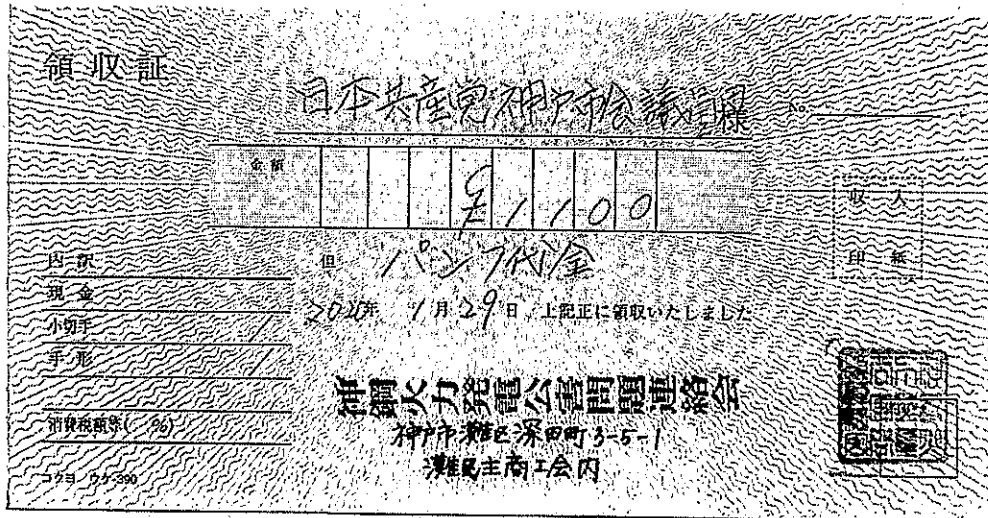 領収証
日本共産党神戸市会議員団様
No.
金額
¥1100
収入
印紙
但 パンフ代金
内訳
現金
小切手
手形
消費税額等( %)
2020年 1月29日 上記正に領収いたしました
神鋼火力発電公害問題連絡会
神戸市灘区深田町3-5-1
灘民主商工会内
コクヨ ウケ-390